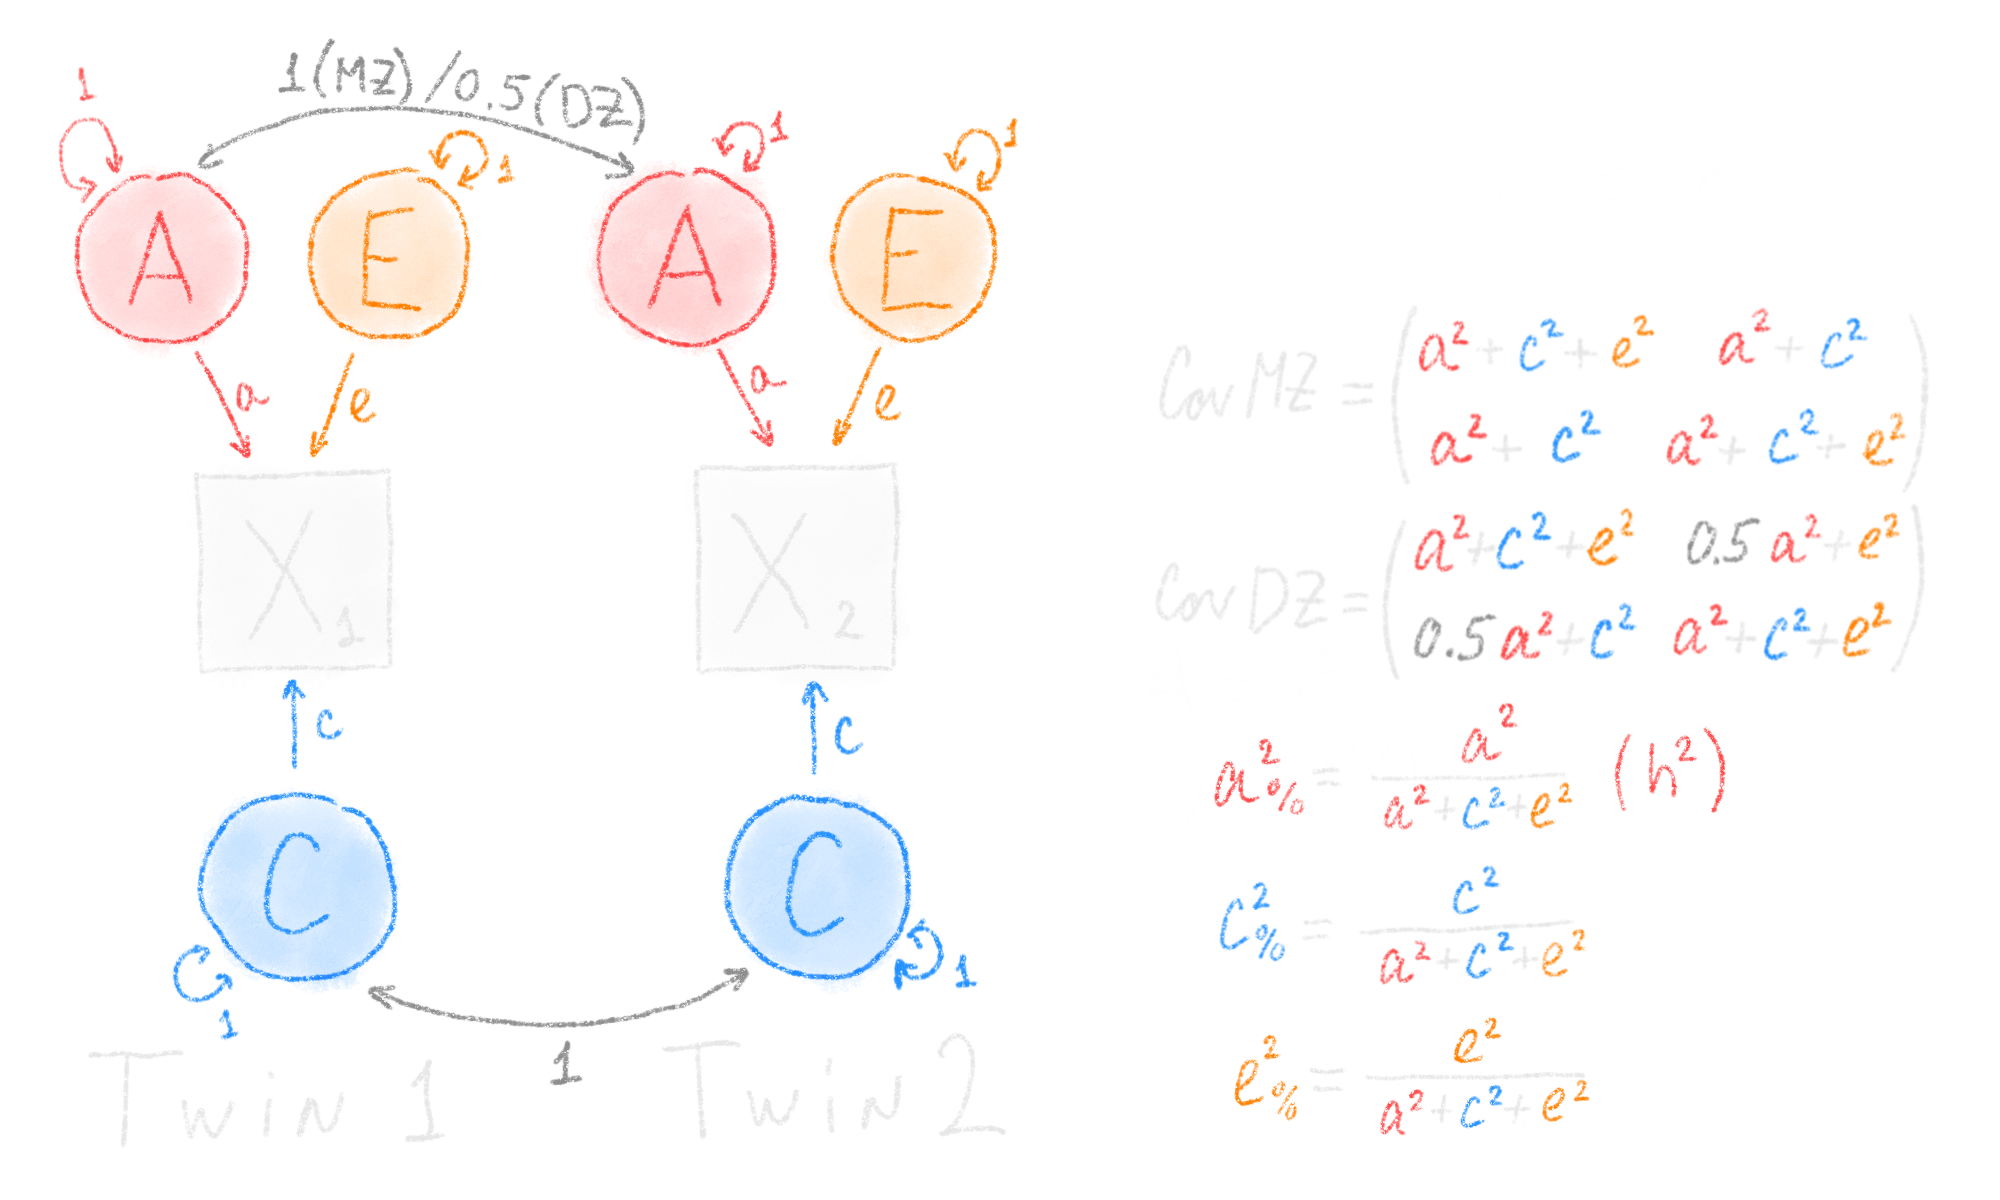 1(MZ)/0.5(DZ)
1 1 1 1
A E A E
a e a e
X₁ X₂
c c
C C
1 1
1
Twin 1 Twin 2
Cov MZ = ( a² + c² + e² a² + c²
a² + c² a² + c² + e² )
Cov DZ = ( a² + c² + e² 0.5 a² + e²
0.5 a² + c² a² + c² + e² )
a²% = a² / (a² + c² + e²) (h²)
c²% = c² / (a² + c² + e²)
e²% = e² / (a² + c² + e²)